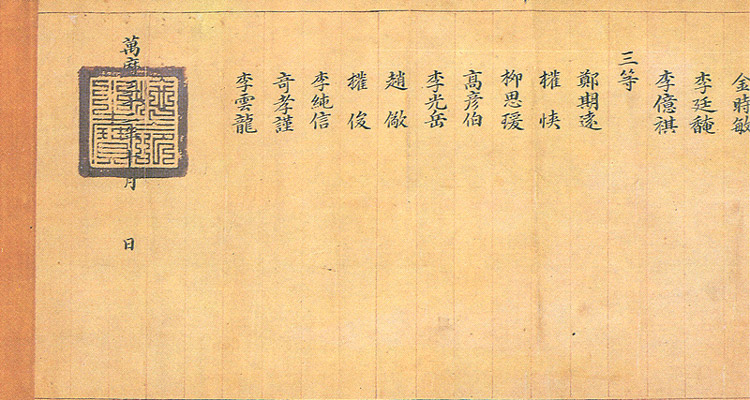 金時敏
李廷馣
李億祺
三等
鄭期遠
權悏
柳思瑗
高彦伯
李光岳
趙儆
權俊
李純信
奇孝謹
李雲龍
萬曆 月 日